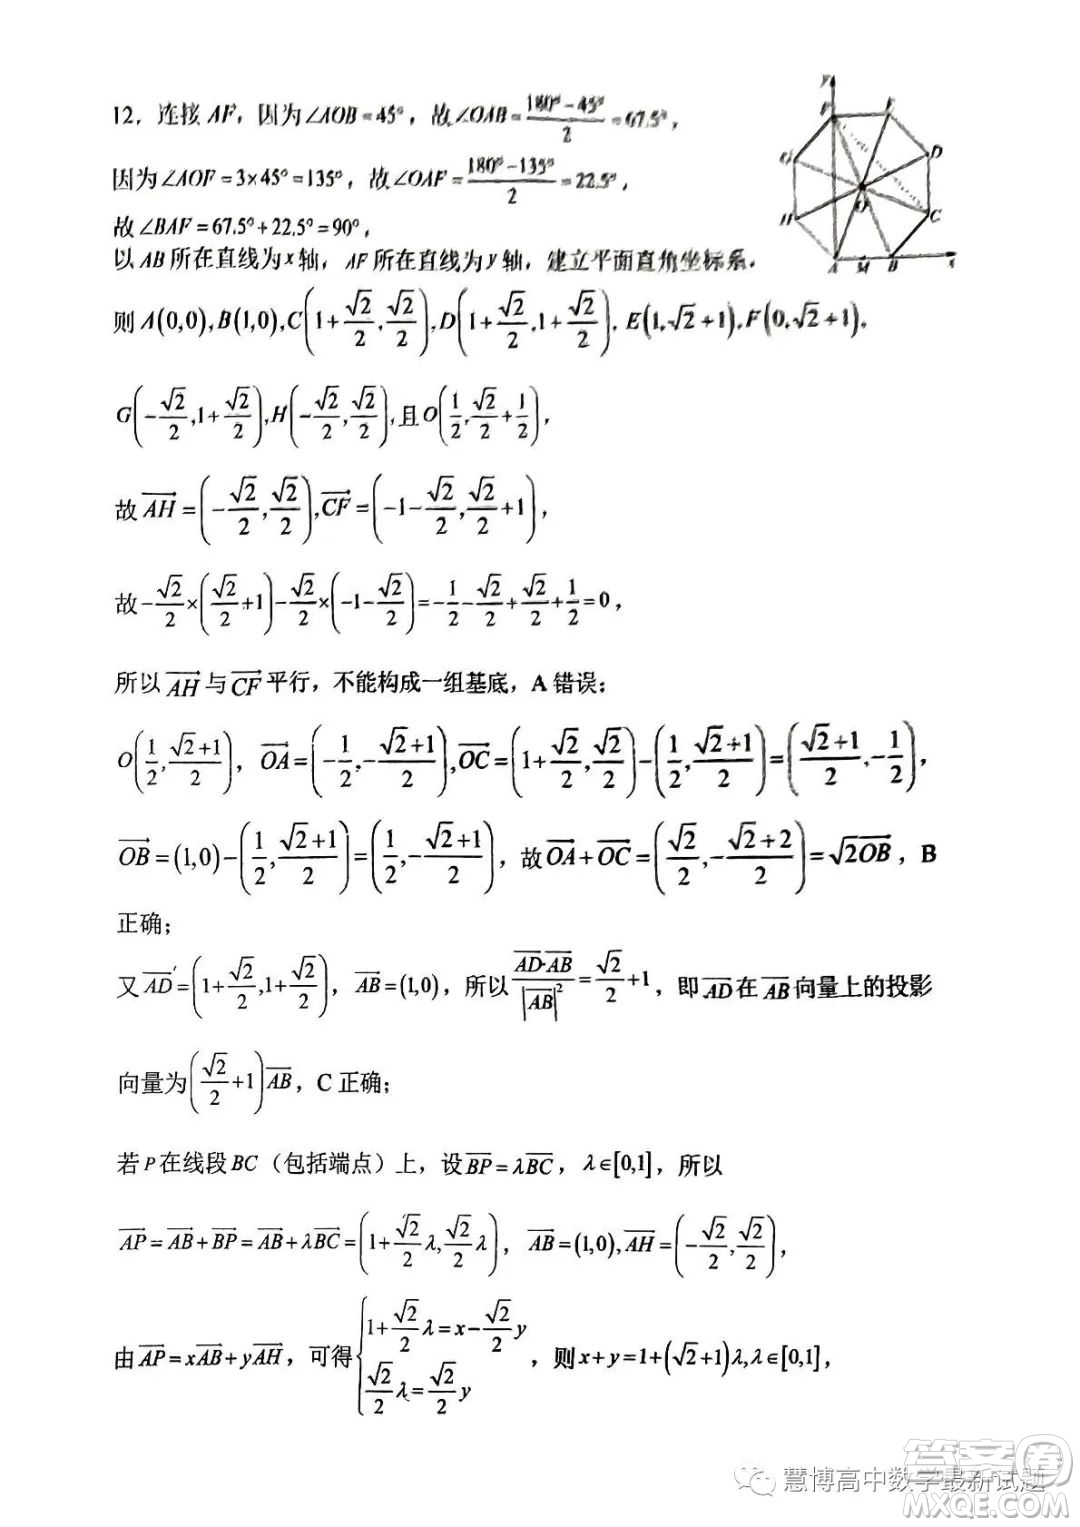 12. 连接 AF, 因为∠AOB=45°, 故∠OAB=\frac{180°-45°}{2}=67.5°,
因为∠AOF=3×45°=135°, 故∠OAF=\frac{180°-135°}{2}=22.5°,
故∠BAF=67.5°+22.5°=90°,
以 AB 所在直线为 x 轴, AF 所在直线为 y 轴, 建立平面直角坐标系.
则 A(0,0), B(1,0), C(1+\frac{√2}{2},\frac{√2}{2}), D(1+\frac{√2}{2},1+\frac{√2}{2}), E(1,√2+1), F(0,√2+1),
G(-\frac{√2}{2},1+\frac{√2}{2}), H(-\frac{√2}{2},\frac{√2}{2}), 且 O(\frac{1}{2},\frac{√2}{2}+\frac{1}{2}),
故 \overrightarrow{AH}=(-\frac{√2}{2},\frac{√2}{2}), \overrightarrow{CF}=(-1-\frac{√2}{2},\frac{√2}{2}+1),
故 -\frac{√2}{2}×(\frac{√2}{2}+1)-\frac{√2}{2}×(-1-\frac{√2}{2})=-\frac{1}{2}-\frac{√2}{2}+\frac{√2}{2}+\frac{1}{2}=0,
所以 \overrightarrow{AH} 与 \overrightarrow{CF} 平行, 不能构成一组基底, A 错误;
O(\frac{1}{2},\frac{√2+1}{2}), \overrightarrow{OA}=(-\frac{1}{2},-\frac{√2+1}{2}), \overrightarrow{OC}=(1+\frac{√2}{2},\frac{√2}{2})-(\frac{1}{2},\frac{√2+1}{2})=(\frac{√2+1}{2},-\frac{1}{2}),
\overrightarrow{OB}=(1,0)-(\frac{1}{2},\frac{√2+1}{2})=(\frac{1}{2},-\frac{√2+1}{2}), 故 \overrightarrow{OA}+\overrightarrow{OC}=(\frac{√2}{2},-\frac{√2+2}{2})=√2\overrightarrow{OB}, B
正确;
又 \overrightarrow{AD}=(1+\frac{√2}{2},1+\frac{√2}{2}), \overrightarrow{AB}=(1,0), 所以 \frac{\overrightarrow{AD}·\overrightarrow{AB}}{|\overrightarrow{AB}|^2}=\frac{√2}{2}+1, 即 \overrightarrow{AD} 在 \overrightarrow{AB} 向量上的投影
向量为 (\frac{√2}{2}+1)\overrightarrow{AB}, C 正确;
若 P 在线段 BC (包括端点) 上, 设 \overrightarrow{BP}=λ\overrightarrow{BC}, λ∈[0,1], 所以
\overrightarrow{AP}=\overrightarrow{AB}+\overrightarrow{BP}=\overrightarrow{AB}+λ\overrightarrow{BC}=(1+\frac{√2}{2}λ,\frac{√2}{2}λ), \overrightarrow{AB}=(1,0), \overrightarrow{AH}=(-\frac{√2}{2},\frac{√2}{2}),
由 \overrightarrow{AP}=x\overrightarrow{AB}+y\overrightarrow{AH}, 可得 \begin{cases}1+\frac{√2}{2}λ=x-\frac{√2}{2}y\\\frac{√2}{2}λ=\frac{√2}{2}y\end{cases}, 则 x+y=1+(√2+1)λ, λ∈[0,1],
y
F E
G D
O
H C
A M B x
慧博高中数学最新试题
答案圈
MXQE.COM